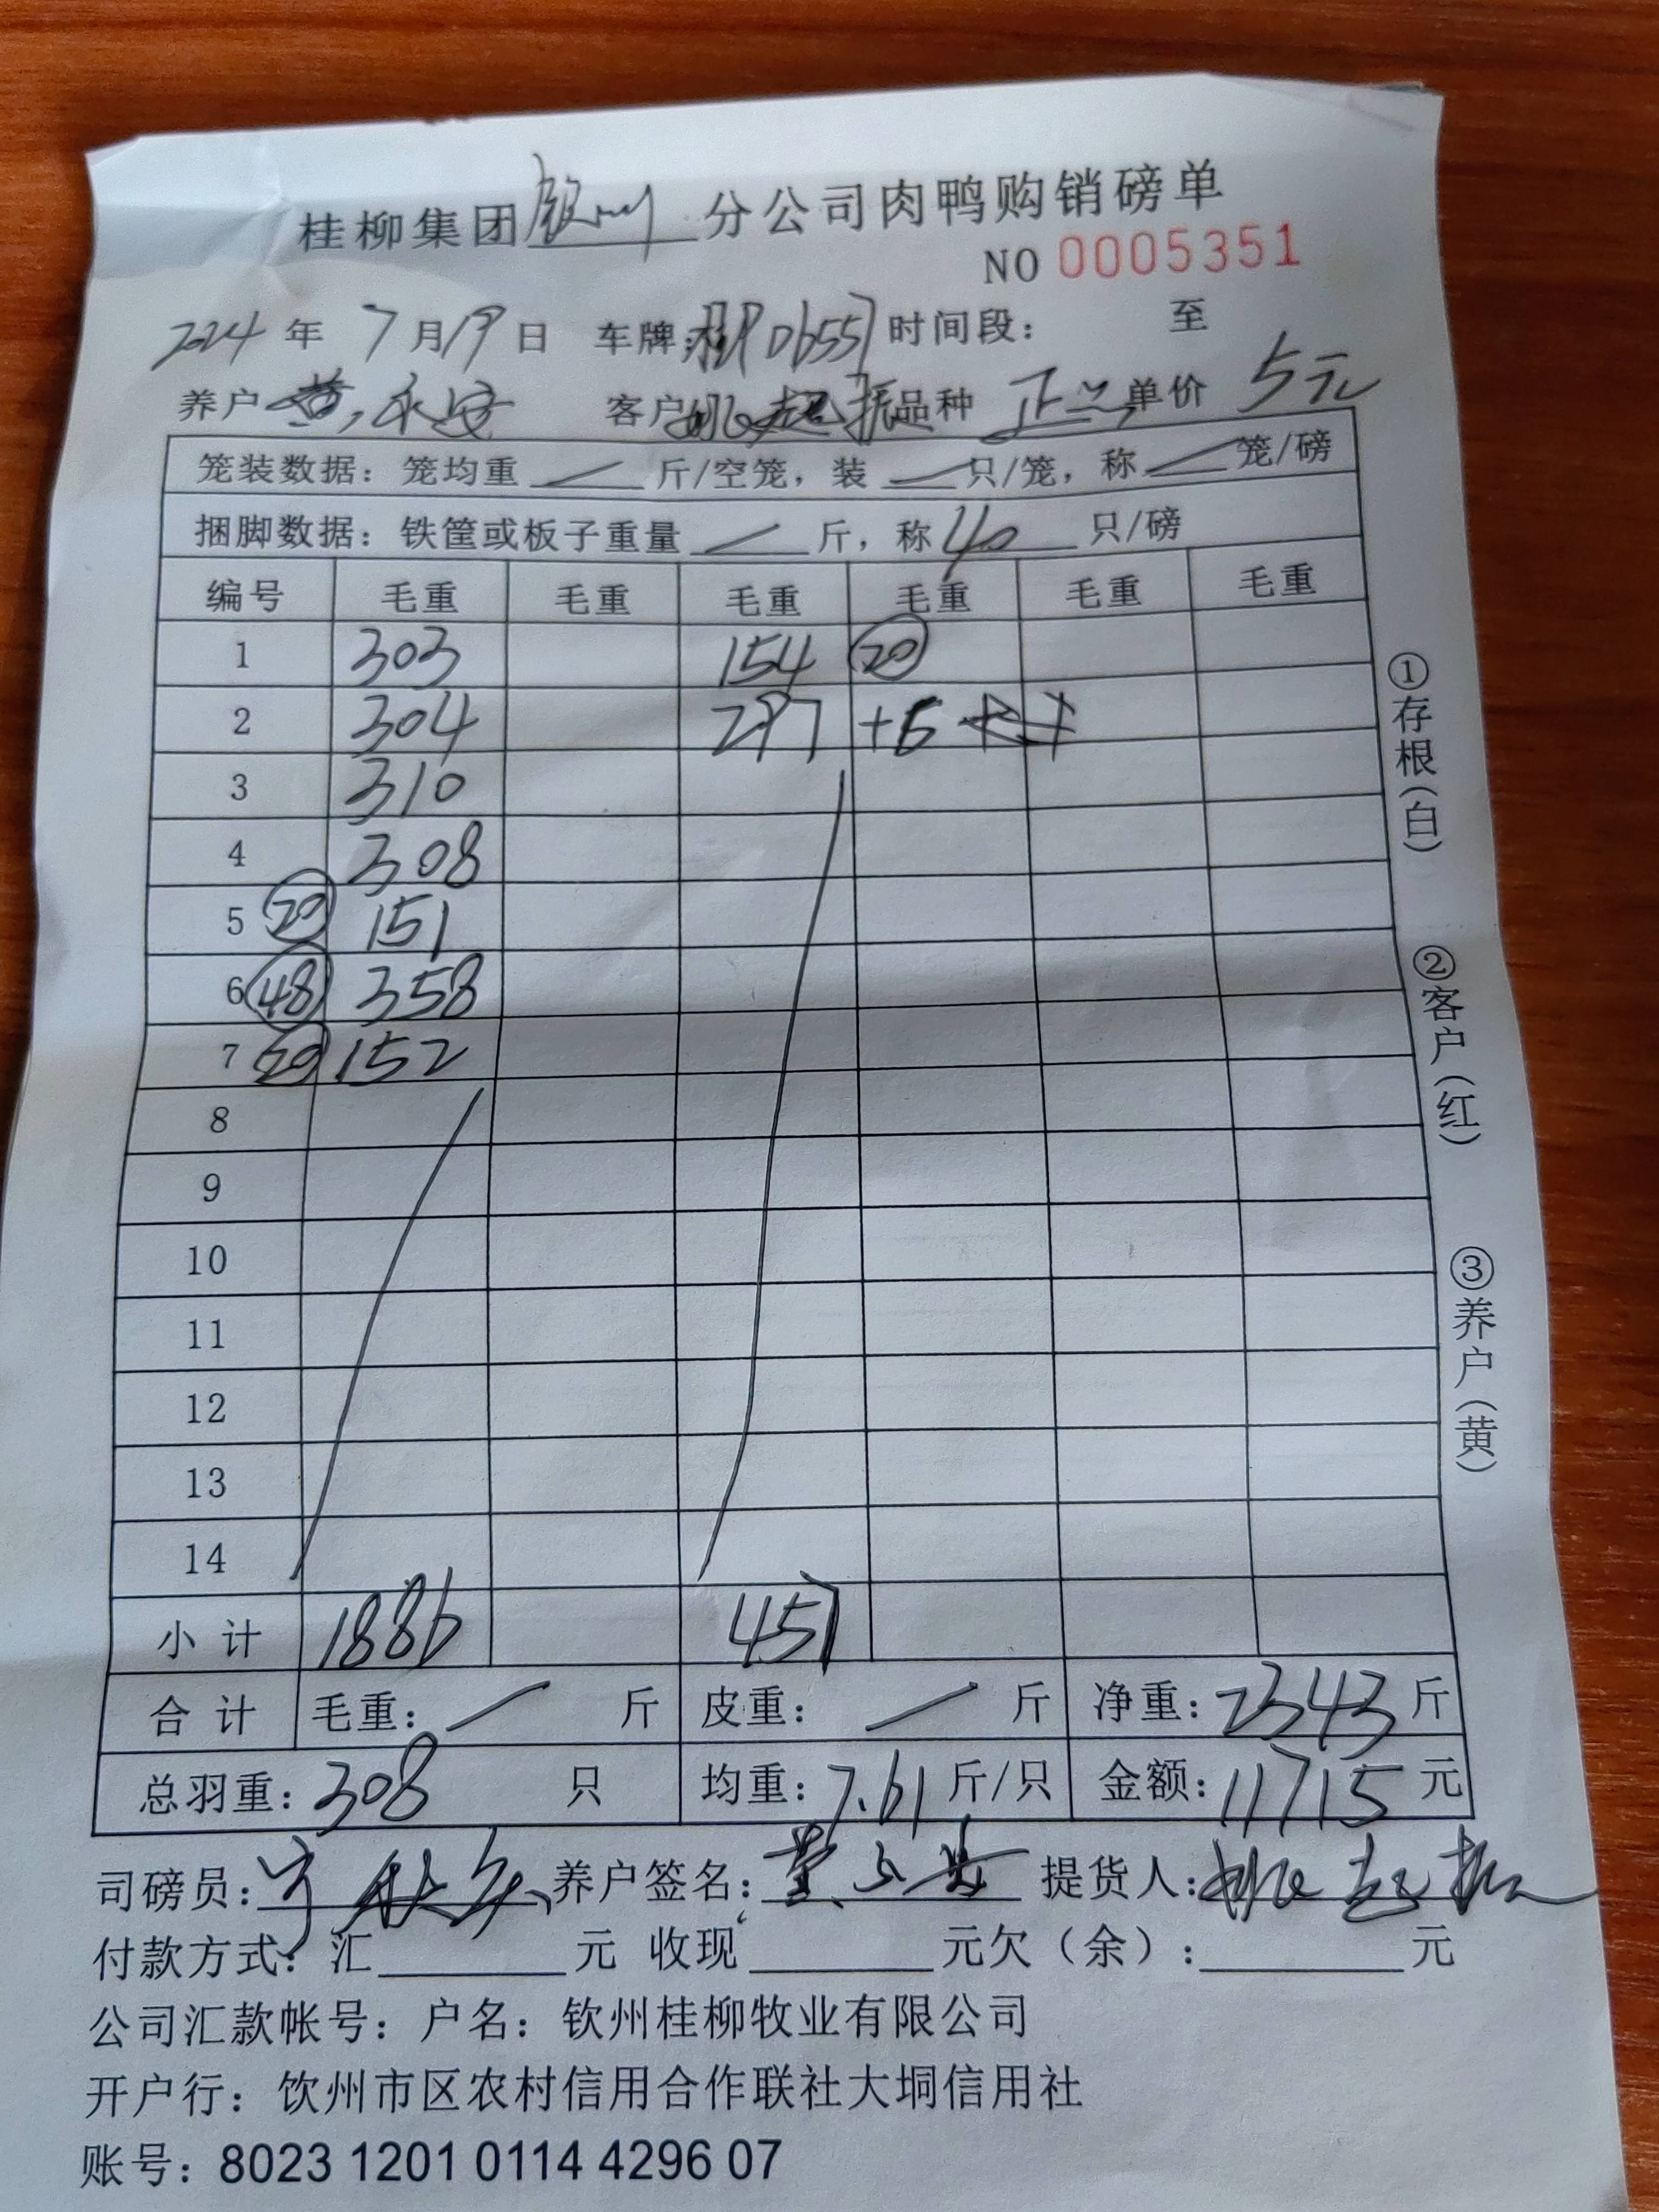 桂柳集团钦州分公司肉鸭购销磅单
NO 0005351
2024年7月19日 车牌:桂P0655 时间段: 至
养户 黄永安 客户 姚起振 品种 正 单价 5元
笼装数据:笼均重 / 斤/空笼,装 / 只/笼,称 / 笼/磅
捆脚数据:铁筐或板子重量 / 斤,称 40 只/磅
编号 毛重 毛重 毛重 毛重 毛重 毛重
1 303 154 ⑳
2 304 297 +6
3 310
4 308
5 ⑳ 151
6 ㊽ 358
7 ⑳ 152
8
9
10
11
12
13
14
小计 1886 457
合计 毛重: / 斤 皮重: / 斤 净重:2343斤
总羽重:308 只 均重:7.61斤/只 金额:11715元
司磅员: 养户签名: 提货人:姚起振
付款方式:汇 元 收现 元欠(余): 元
公司汇款帐号:户名:钦州桂柳牧业有限公司
开户行:饮州市区农村信用合作联社大垌信用社
账号:8023 1201 0114 4296 07
①存根(白)
②客户(红)
③养户(黄)